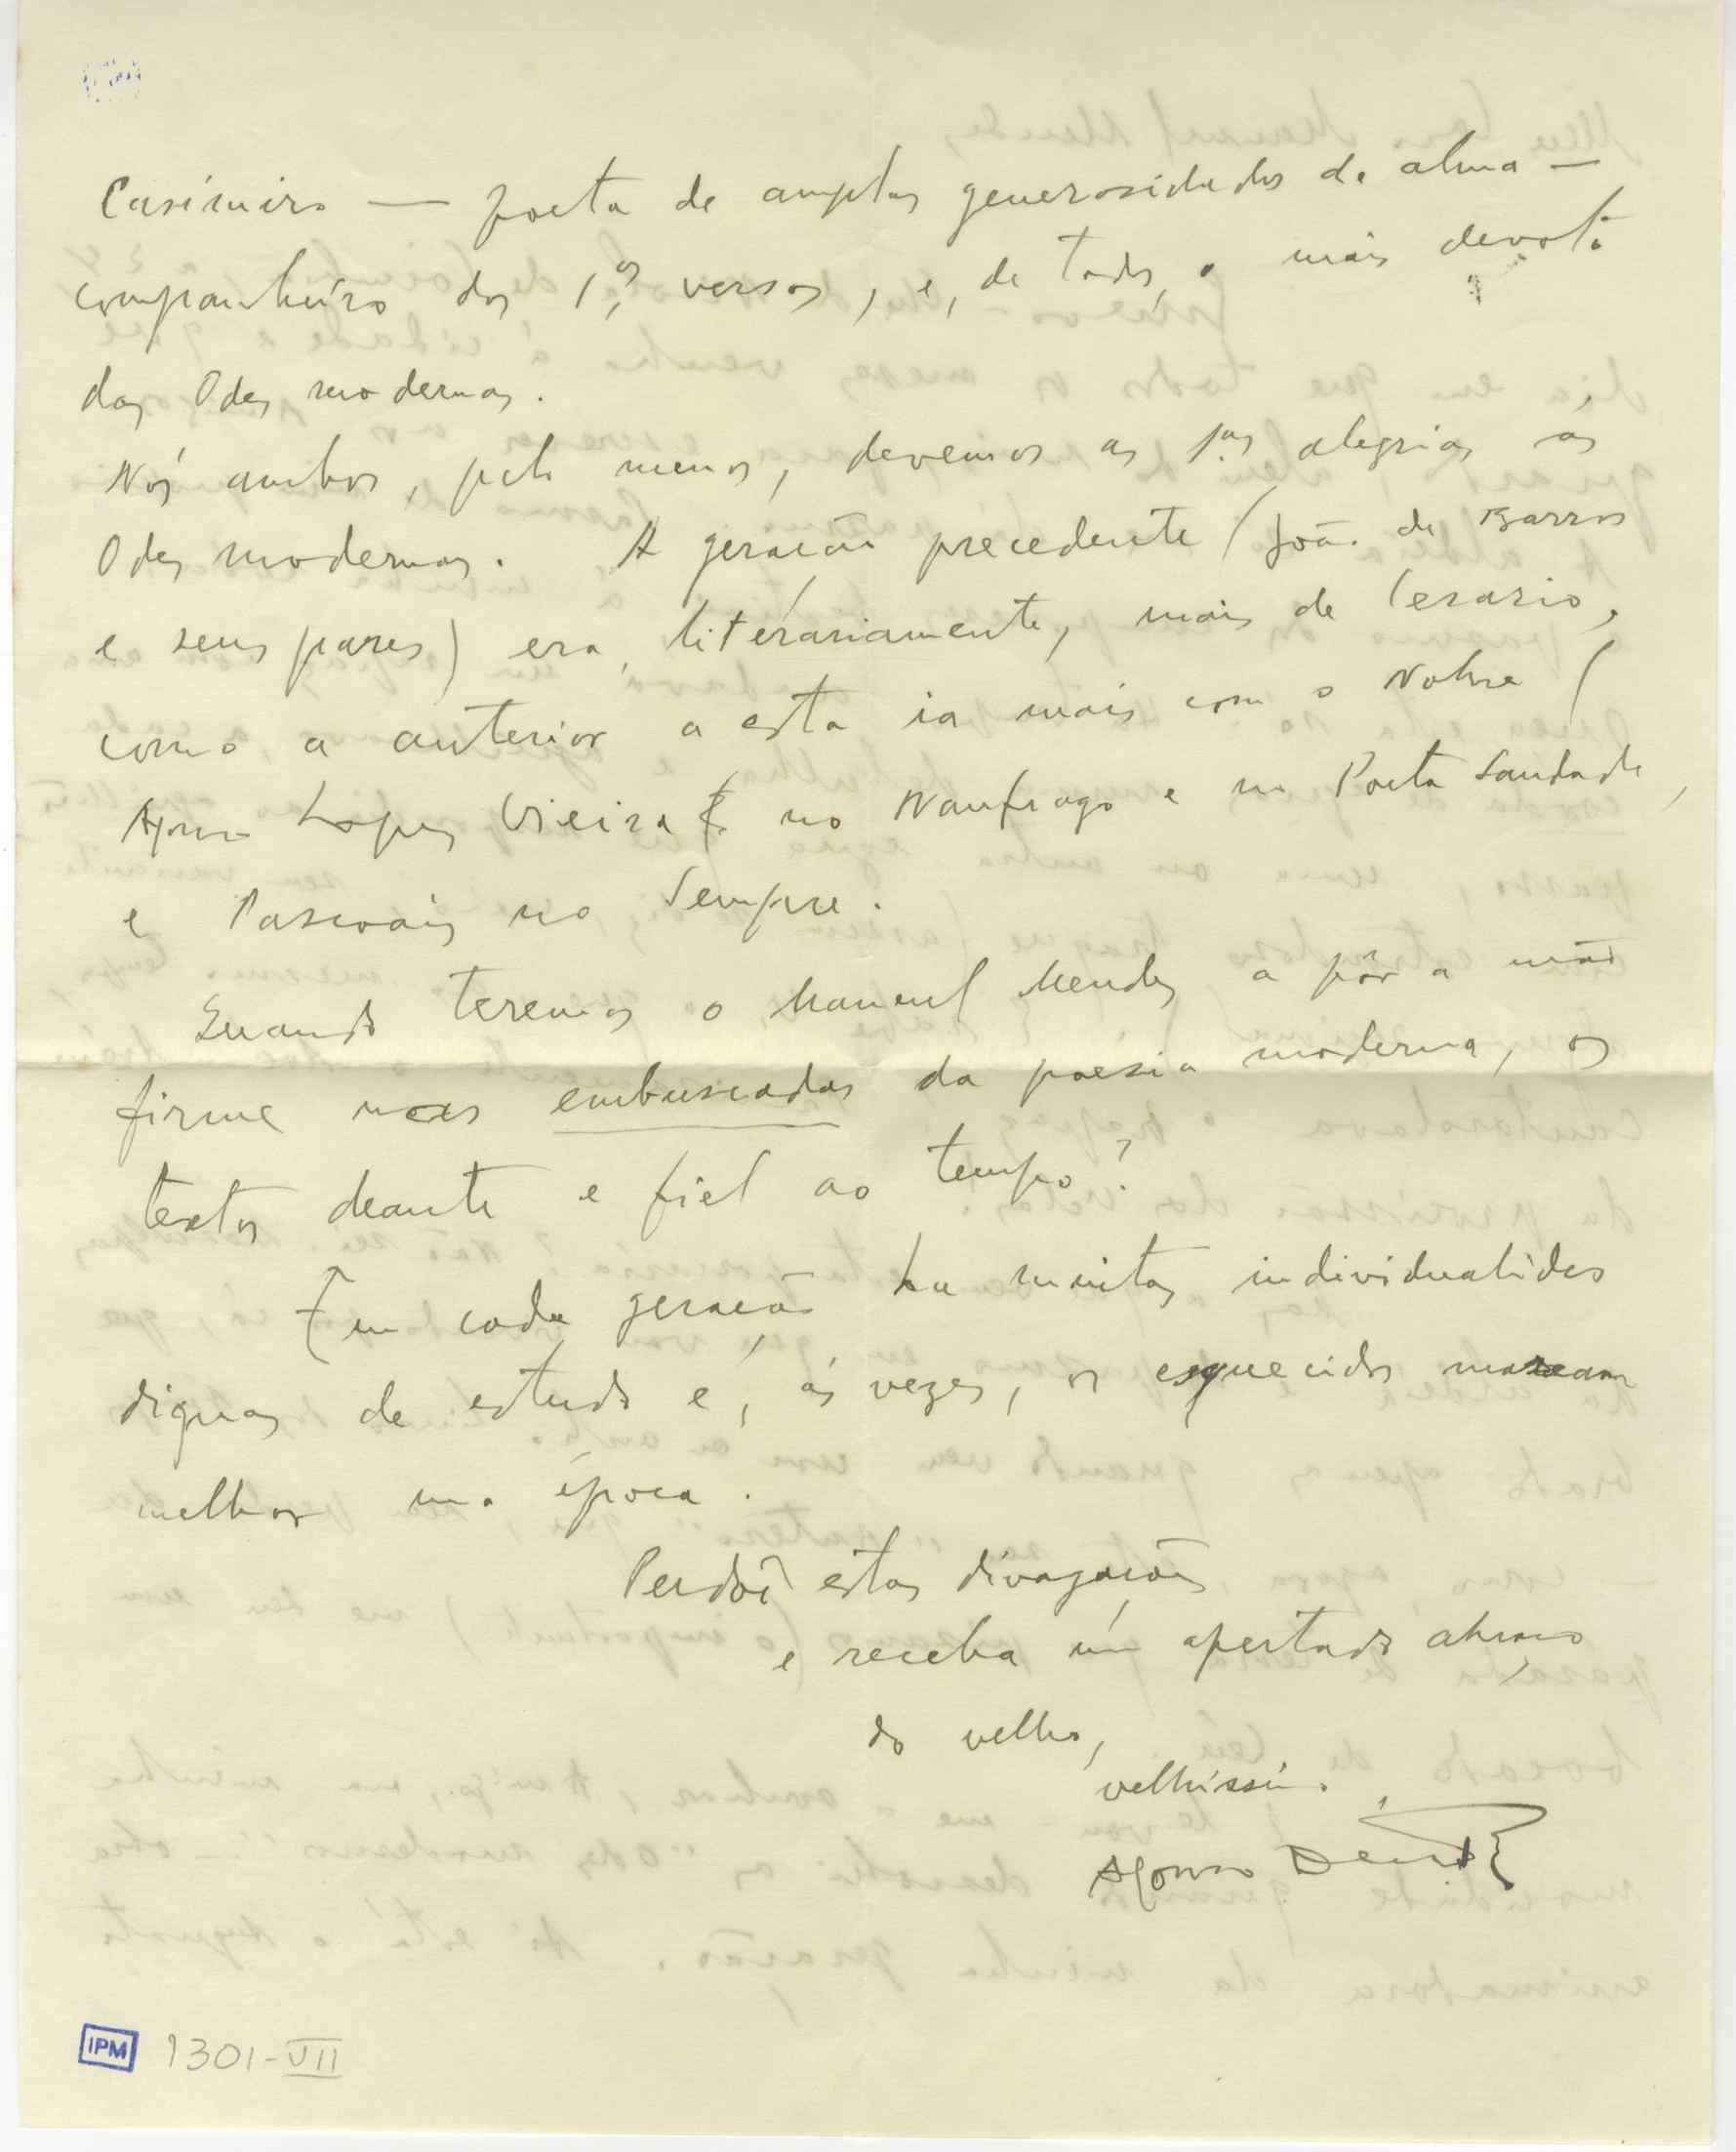 Casimiro — poeta de amplas generosidades de alma —
companheiro dos 1.os versos, e, de todos, o mais devoto
das Odes modernas.
Nós ambos, pelo menos, devemos as 1.as alegrias ás
Odes modernas. A geração precedente (João de Barros
e seus pares) era, literáriamente, mais de Cesario,
como a anterior a esta ia mais com o Nobre (
Afonso Lopes Vieira no Naufrago e no Poeta Saudade,
e Pascoais no Sempre.
Quando teremos o Manuel Mendes a pôr a mão
firme nas embuscadas da poesia moderna, os
textos deante e fiel ao tempo?
Em cada geração ha muitas individualides
dignas de estudo e, ás vezes, os esquecidos marcam
melhor uma época.
Perdôe estas divagações
e receba um apertado abraço
do velho,
velhissimo
Afonso Duarte
IPM 1301-VII